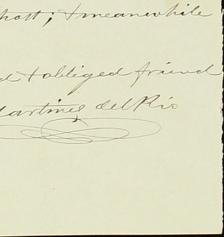 hott; & meanwhile
d & obliged friend
Martinez del Rio